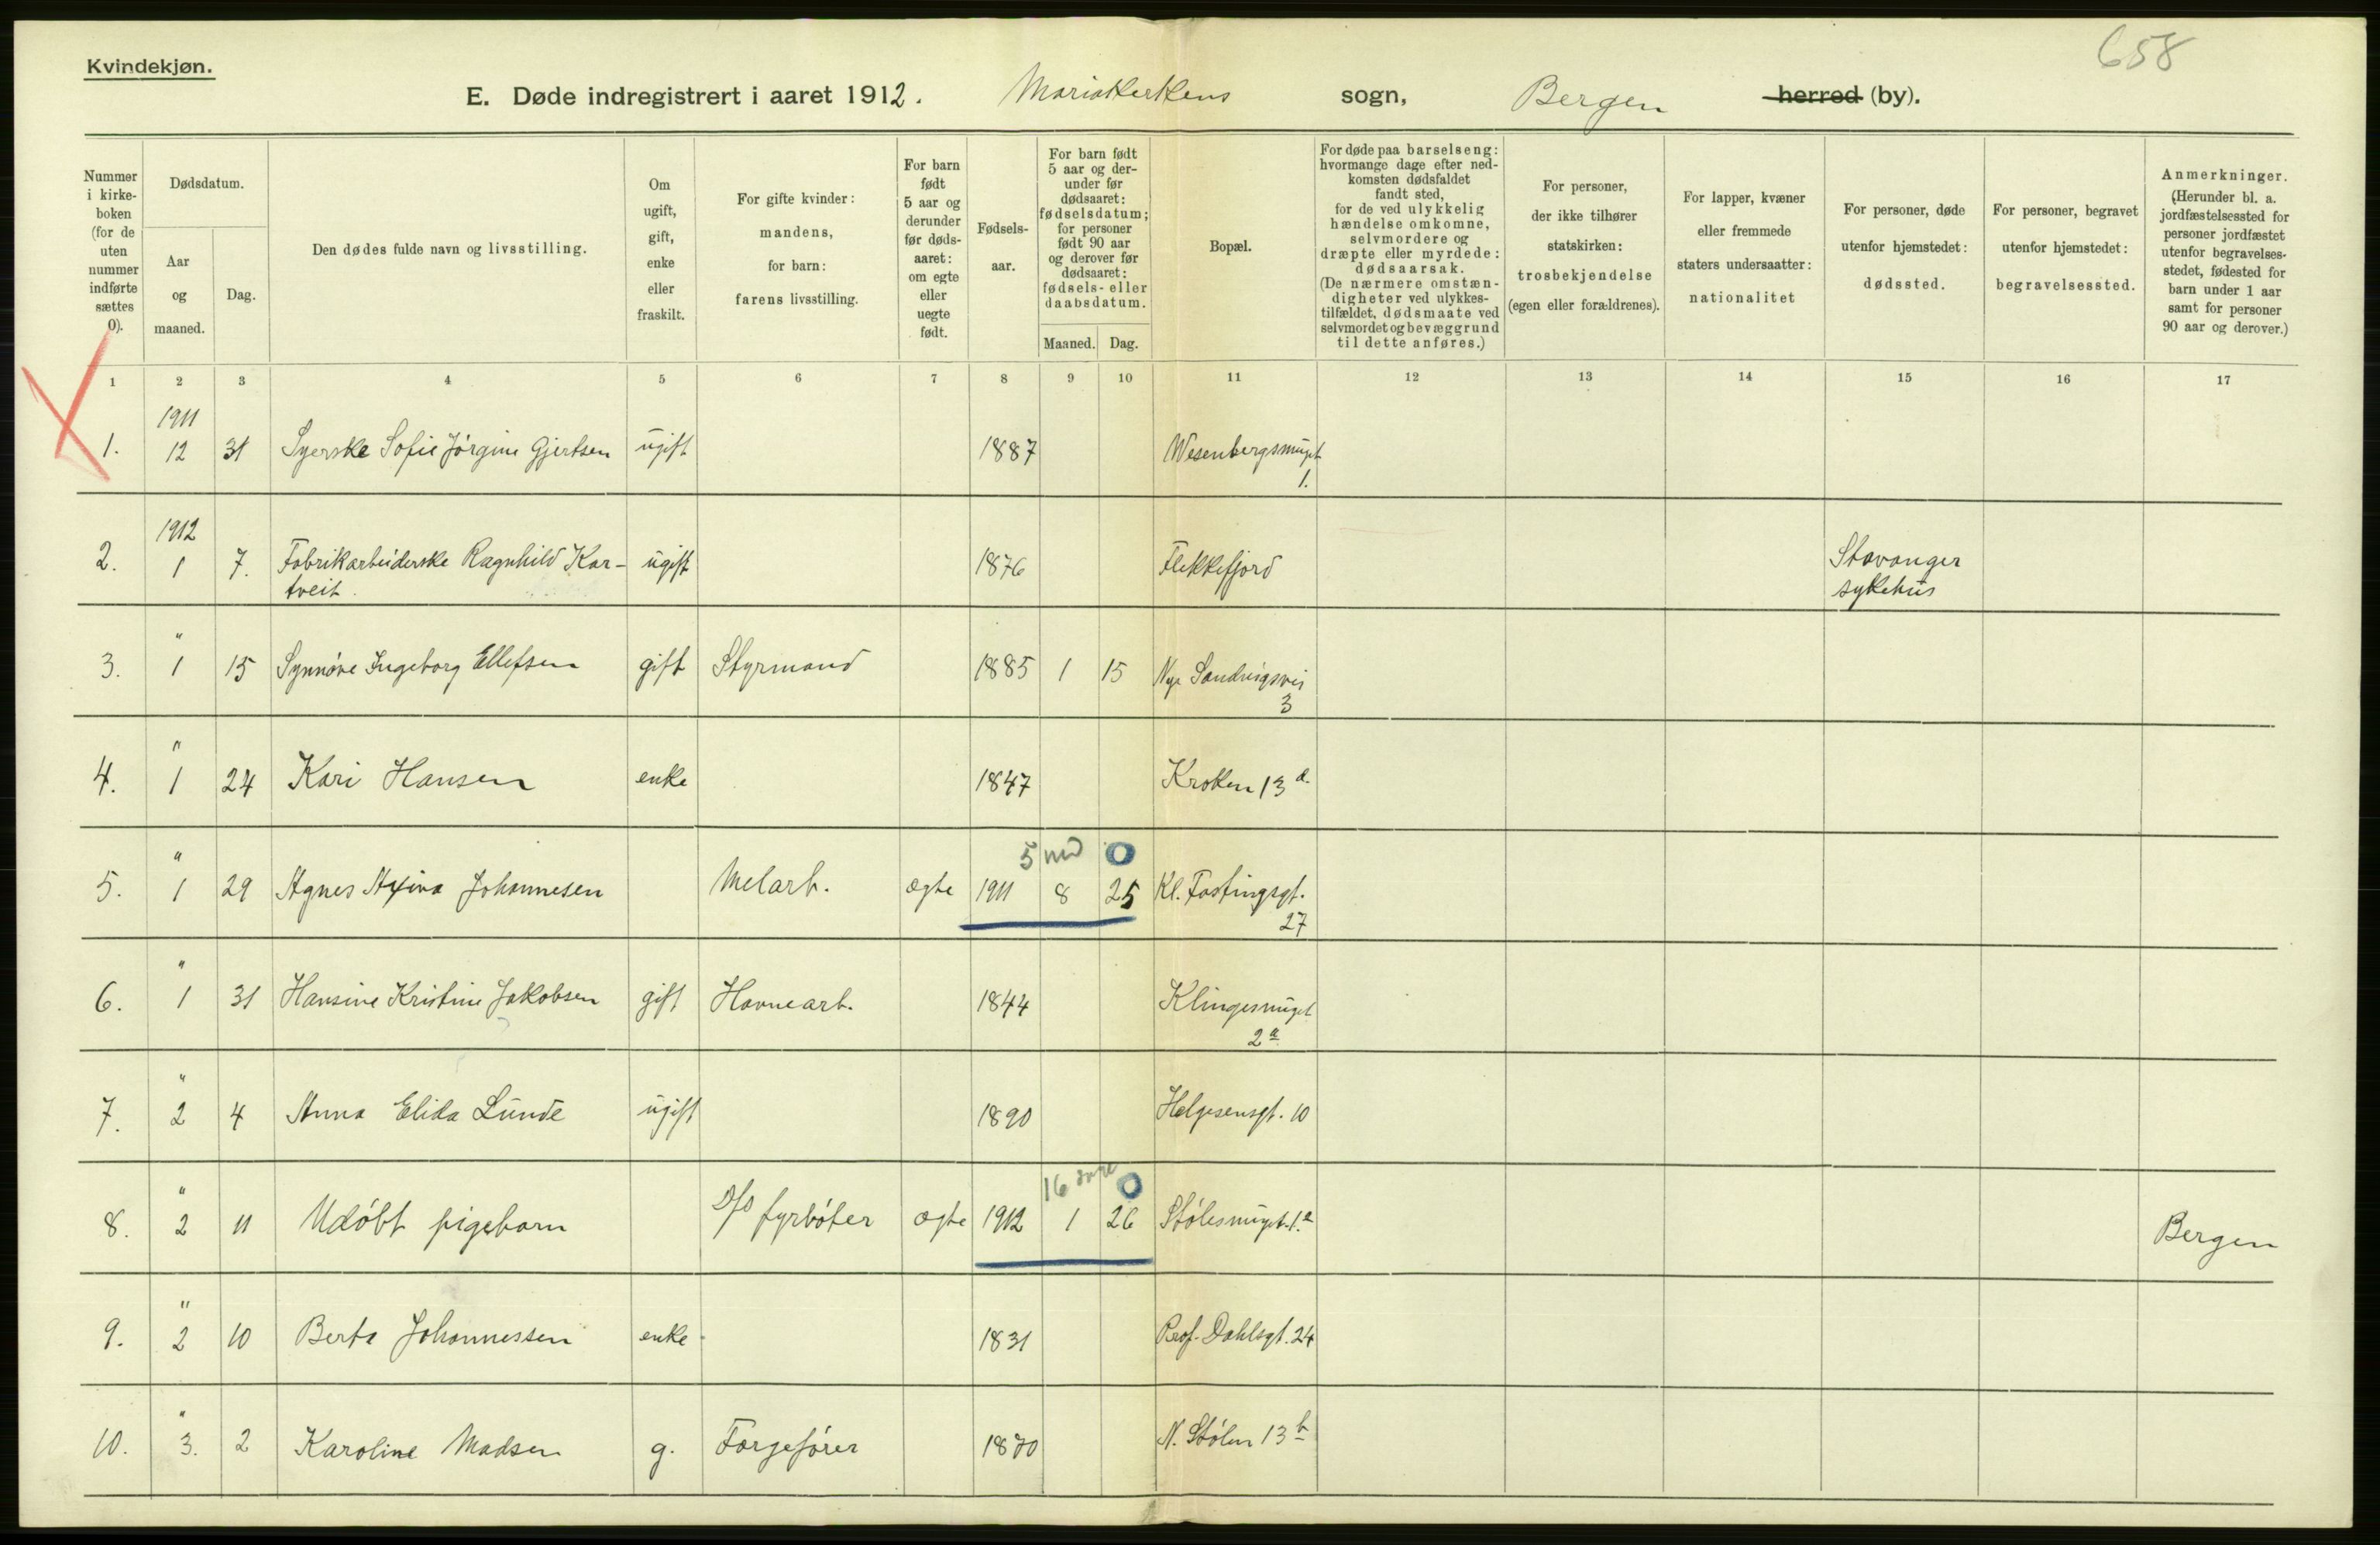 658
Kvindekjøn.
E. Døde indregistrert i aaret 1912. Mariakirkens sogn, Bergen herred (by).
Nummer i kirke-boken (for de uten nummer indførte sættes 0).
Dødsdatum.
Aar og maaned.
Dag.
Den dødes fulde navn og livsstilling.
Om ugift, gift, enke eller fraskilt.
For gifte kvinder: mandens, for barn: farens livsstilling.
For barn født 5 aar og derunder før døds-aaret: om egte eller uegte født.
Fødsels-aar.
For barn født 5 aar og der-under før dødsaaret: fødselsdatum; for personer født 90 aar og derover før dødsaaret: fødsels- eller daabsdatum.
Maaned. Dag.
Bopæl.
For døde paa barselseng: hvormange dage efter ned-komsten dødsfaldet fandt sted, for de ved ulykkelig hændelse omkomne, selvmordere og dræpte eller myrdede: dødsaarsak. (De nærmere omstæn-digheter ved ulykkes-tilfældet, dødsmaate ved selvmordet og bevæggrund til dette anføres.)
For personer, der ikke tilhører statskirken: trosbekjendelse (egen eller forældrenes).
For lapper, kvæner eller fremmede staters undersaatter: nationalitet
For personer, døde utenfor hjemstedet: dødssted.
For personer, begravet utenfor hjemstedet: begravelsessted.
Anmerkninger. (Herunder bl. a. jordfæstelsessted for personer jordfæstet utenfor begravelses-stedet, fødested for barn under 1 aar samt for personer 90 aar og derover.)
1 2 3 4 5 6 7 8 9 10 11 12 13 14 15 16 17
1911
1. 12 31 Syerske Sofie Jørgine Gjertsen ugift 1887 Wesenbergsmuget
1.
1912
2. 1 7. Fabrikarbeiderske Ragnhild Kar- ugift 1876 Flekkefjord Stavanger
tveit sykehus
"
3. 1 15 Synnøve Ingeborg Ellefsen gift Styrmand 1885 1 15 Nye Sandvigsvei
3
"
4. 1 24 Kari Hansen enke 1847 Kroken 13 a.
" 5 md 0
5. 1 29 Agnes Axina Johannesen Melarb. ægte 1911 8 25 Kl. Fastingsgt.
27
"
6. 1 31 Hansine Kristine Jakobsen gift Havnearb. 1844 Klingesmuget
2 a
"
7. 2 4 Anna Elida Lunde ugift 1890 Helgesensgt. 10
" 16 dage 0
8. 2 11 Udøbt pigebarn D/S fyrbøter ægte 1912 1 26 Stølesmuget 1.a Bergen
"
9. 2 10 Berta Johannessen enke 1831 Prof. Dahlsgt. 24
"
10. 3. 2 Karoline Madsen g. Færgefører 1870 N. Stølen 13 b